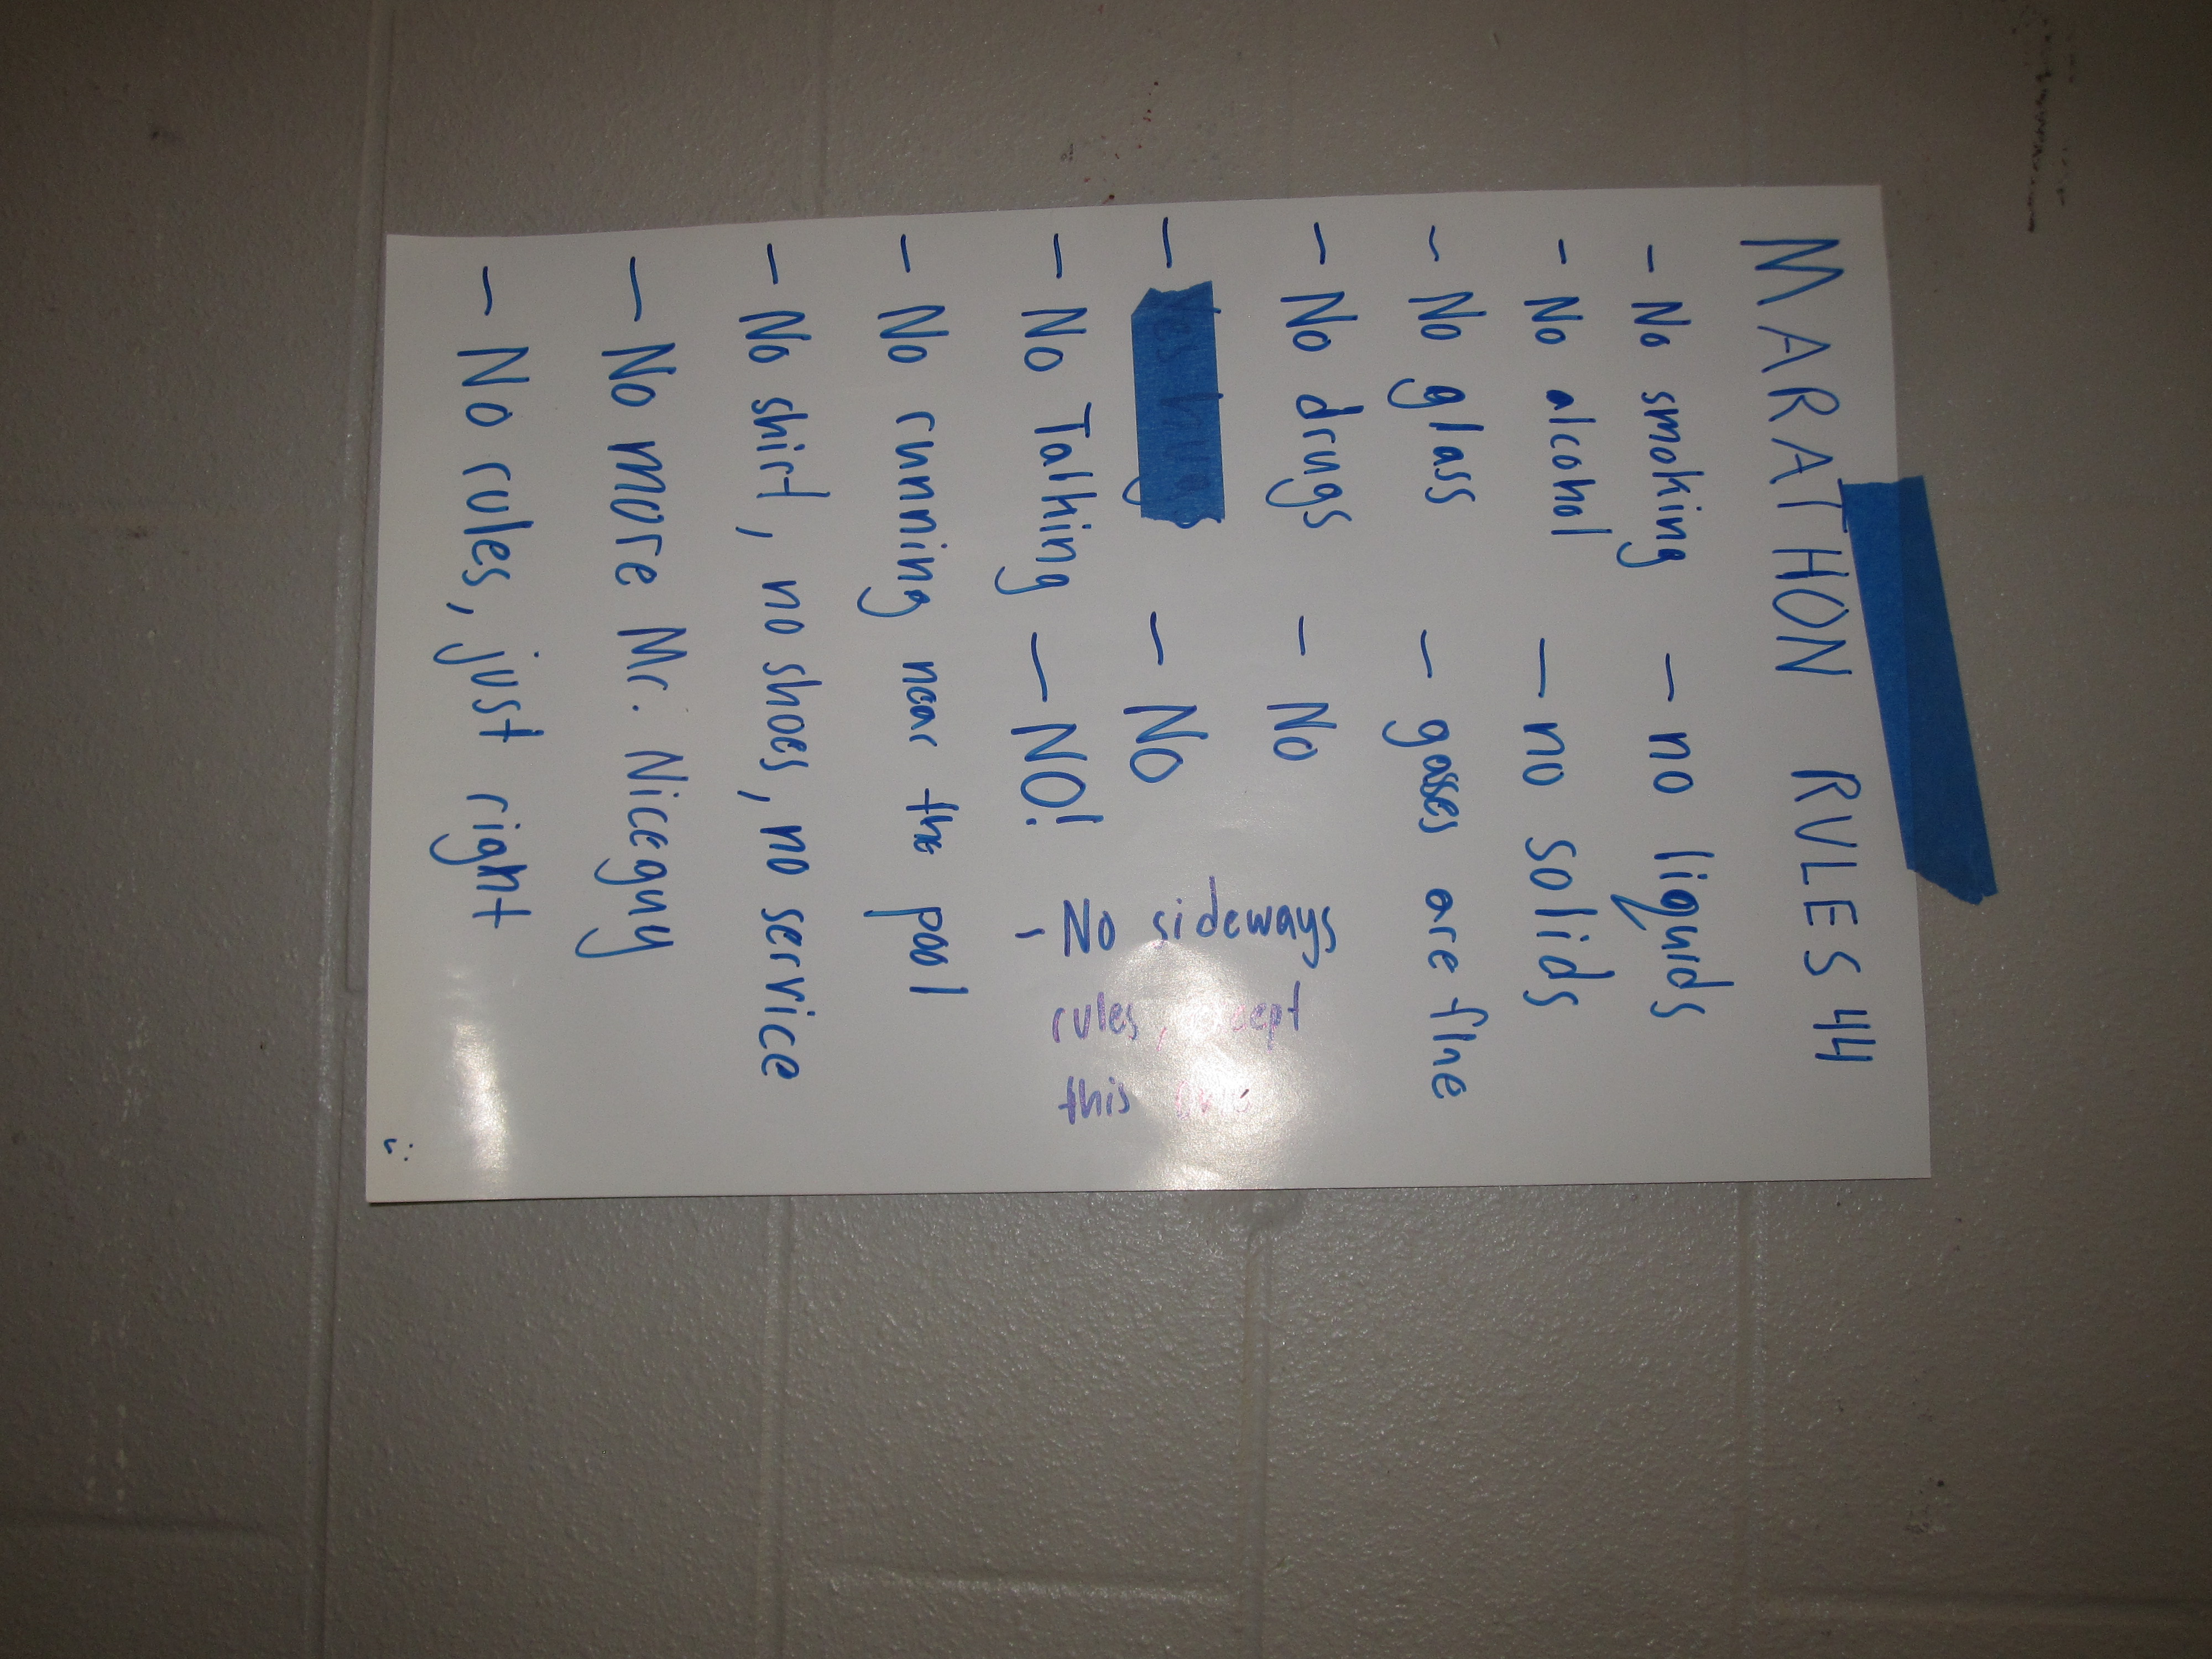 MARATHON RULES 44
- No smoking - no liquids
- No alcohol - no solids
- No glass - gasses are fine
- No drugs - No
- Yes - No
- No Talking - NO!
- No sideways
rules, except
this one
- No running near the pool
- No shirt, no shoes, no service
- No more Mr. Niceguy
- No rules, just right
:)